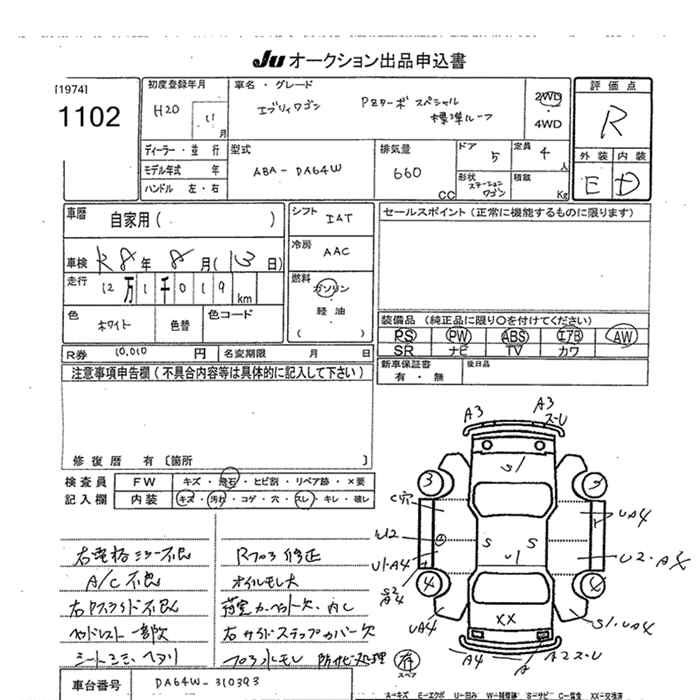 Ju オークション出品申込書
[1974]
1102
初度登録年月
H20
11
月
車名・グレード
エブリィワゴン
PZターボスペシャル
標準ルーフ
2WD
4WD
評価点
R
外装 内装
E D
ディーラー・並行
モデル年式 年
ハンドル 左・右
型式
ABA-DA64W
排気量
660
CC
ドア
5
定員
4
人
形状
ステーション
ワゴン
積載
Kg
車歴
自家用( )
シフト
IAT
セールスポイント(正常に機能するものに限ります)
車検
R8年8月(13日)
冷房
AAC
走行
12万1千019km
燃料
ガソリン
・
軽油
( )
色
ホワイト
色替
色コード
装備品 (純正品に限り〇を付けてください)
PS PW ABS エアB AW
SR ナビ TV カワ
R券 10,010 円
名変期限 月 日
新車保証書
有・無
後日品
注意事項申告欄(不具合内容等は具体的に記入して下さい)
修復歴 有〔箇所 〕
検査員
記入欄
FW
キズ・飛石・ヒビ割・リペア跡・×要
内装
キズ・汚れ・コゲ・穴・スレ・キレ・破レ
A3
A3
ス-U
S1
3
3
C穴
UA4
U2
S
S
U1
U1・A4
U2・AX
S2
A4
4
4
UA4
XX
S1・UA4
A4
A
A2ス-U
右電格ミラー不良
A/C不良
右Pスライド不良
ヘッドレスト一部欠
Rフロア修正
オイルモレ大
荷室カーペット欠、内C
右サイドステップカバー欠
フロア水モレ 防サビ処理
有
スペア
車台番号
DA64W-310393
A-キズ E-エクボ U-凹み W-補修跡 S-サビ C-腐食 XX-交換済